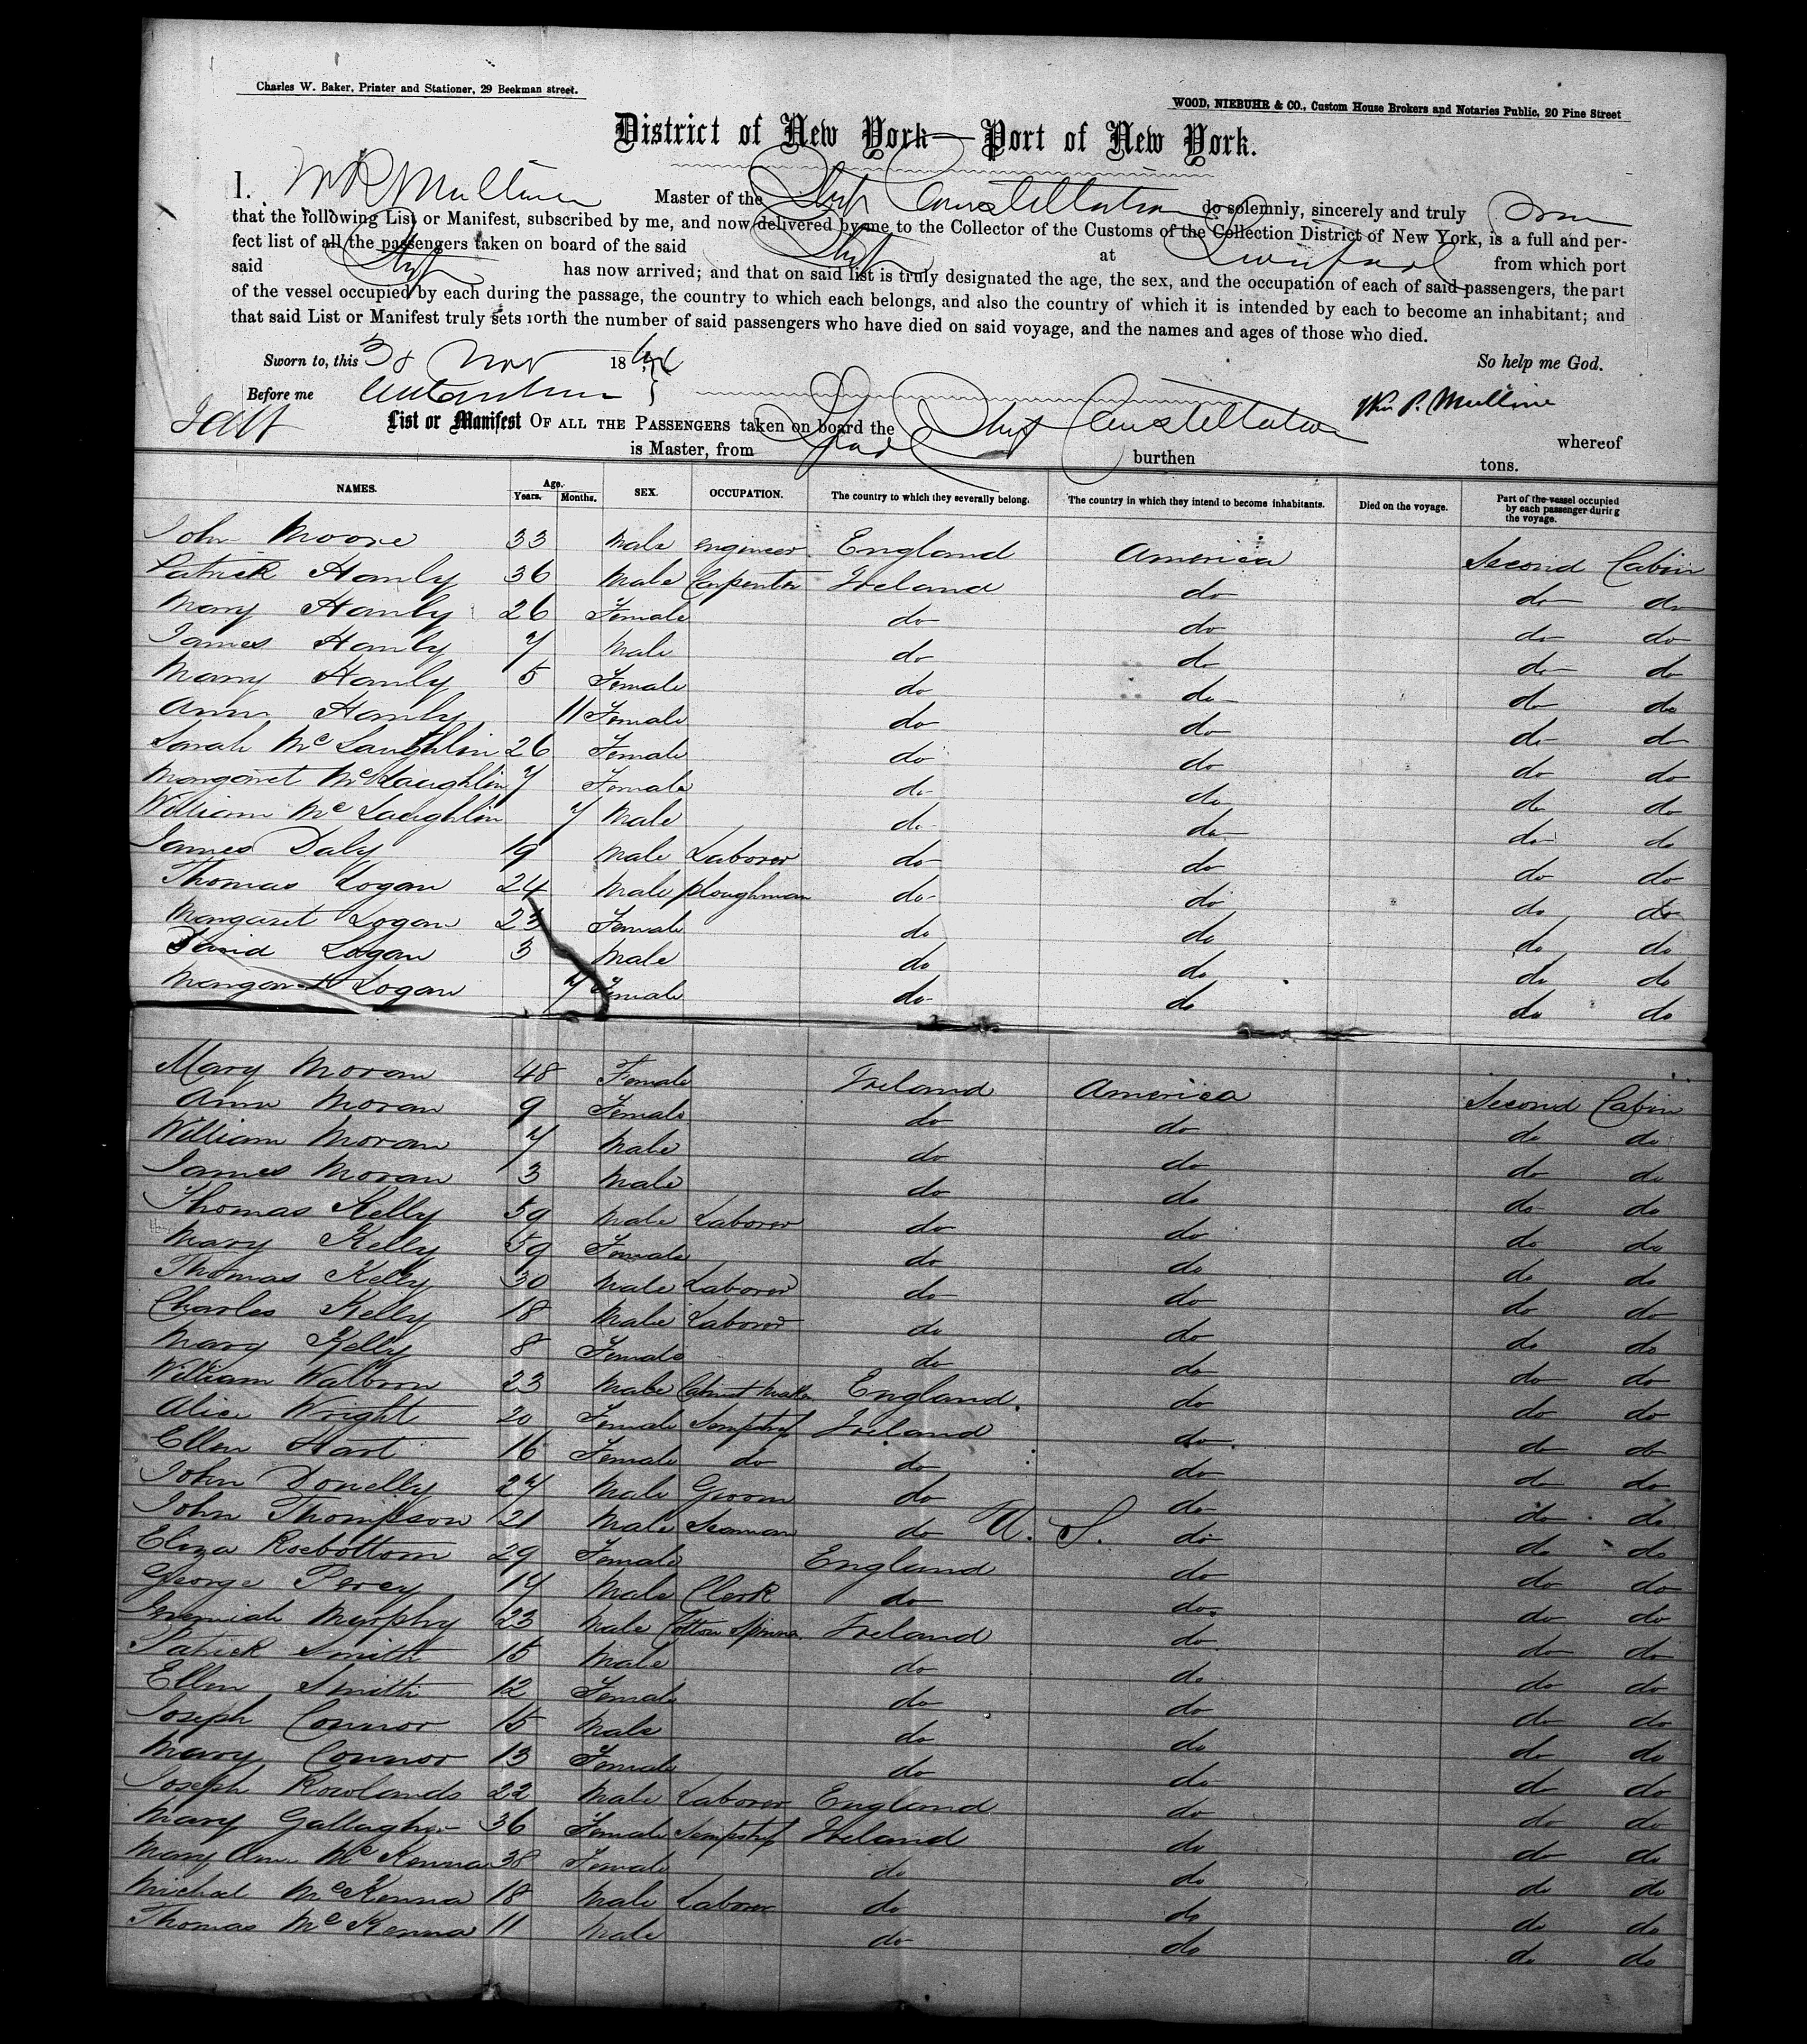 Charles W. Baker, Printer and Stationer, 29 Beekman street.
WOOD, NIEBUHR & CO., Custom House Brokers and Notaries Public, 20 Pine Street
District of New York—Port of New York.
I. Master of the Ship Constellation do solemnly, sincerely and truly
that the following List or Manifest, subscribed by me, and now delivered by me to the Collector of the Customs of the Collection District of New York, is a full and per-
fect list of all the passengers taken on board of the said Ship at Liverpool from which port
said Ship has now arrived; and that on said list is truly designated the age, the sex, and the occupation of each of said passengers, the part
of the vessel occupied by each during the passage, the country to which each belongs, and also the country of which it is intended by each to become an inhabitant; and
that said List or Manifest truly sets forth the number of said passengers who have died on said voyage, and the names and ages of those who died.
Sworn to, this Nov 18 So help me God.
Before me
List or Manifest OF ALL THE PASSENGERS taken on board the Ship Constellation whereof
is Master, from burthen tons.
NAMES. Age. Years. Months. SEX. OCCUPATION. The country to which they severally belong. The country in which they intend to become inhabitants. Died on the voyage. Part of the vessel occupied by each passenger during the voyage.
John Moore 33 Male engineer England America Second Cabin
Patrick Hanly 36 Male Carpenter Ireland do do do
Mary Hanly 26 Female do do do do
James Hanly 7 Male do do do do
Mary Hanly 5 Female do do do do
Ann Hanly 11 Female do do do do
Sarah McLaughlin 26 Female do do do do
Margaret McLaughlin 7 Female do do do do
William McLaughlin 7 Male do do do do
James Daly 19 Male Laborer do do do do
Thomas Logan 24 Male ploughman do do do do
Margaret Logan 23 Female do do do do
David Logan 3 Male do do do do
Margaret Logan 7 Female do do do do
Mary Moran 48 Female Ireland America Second Cabin
Ann Moran 9 Female do do do do
William Moran 7 Male do do do do
James Moran 3 Male do do do do
Thomas Kelly 59 Male Laborer do do do do
Mary Kelly 59 Female do do do do
Thomas Kelly 30 Male Laborer do do do do
Charles Kelly 18 Male Laborer do do do do
Mary Kelly 8 Female do do do do
William Walborn 23 Male Cabinet Maker England. do do do
Alice Wright 20 Female Sempstress Ireland do do do
Ellen Hart 16 Female do do do do do
John Donelly 27 Male Groom do do do do
John Thompson 21 Male Seaman do U. S. do do do
Eliza Roebottom 29 Female England do do do
George Percy 14 Male Clerk do do do do
Jeremiah Murphy 23 Male Cotton Spinner Ireland do do do
Patrick Smith 15 Male do do do do
Ellen Smith 12 Female do do do do
Joseph Connor 15 Male do do do do
Mary Connor 13 Female do do do do
Joseph Rowlands 22 Male Laborer England do do do
Mary Gallagher 36 Female Sempstress Ireland do do do
Mary Ann McKenna 38 Female do do do do
Michael McKenna 18 Male Laborer do do do do
Thomas McKenna 11 Male do do do do